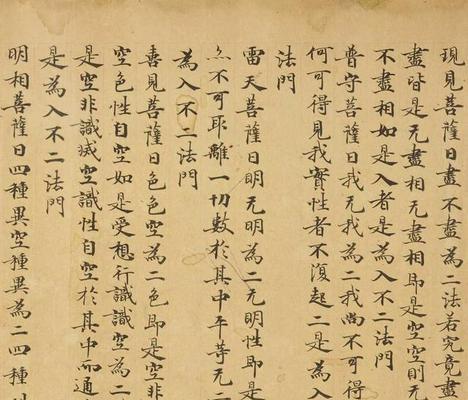 現見菩薩曰盡不盡為二法若究竟盡
盡皆是无盡相无盡相即是空空則无
不盡相如是入者是為入不二法門
普守菩薩曰我无我為二我尚不可得
何可得見我實性者不復起二是為入
法門
雷天菩薩曰明无明為二无明性即是
亦不可取離一切數於其中平等无二
為入不二法門
喜見菩薩曰色色空為二色即是空非
空色性自空如是受想行識識空為二
是空非識滅空識性自空於其中而通
是為入不二法門
明相菩薩曰四種異空種異為二四種